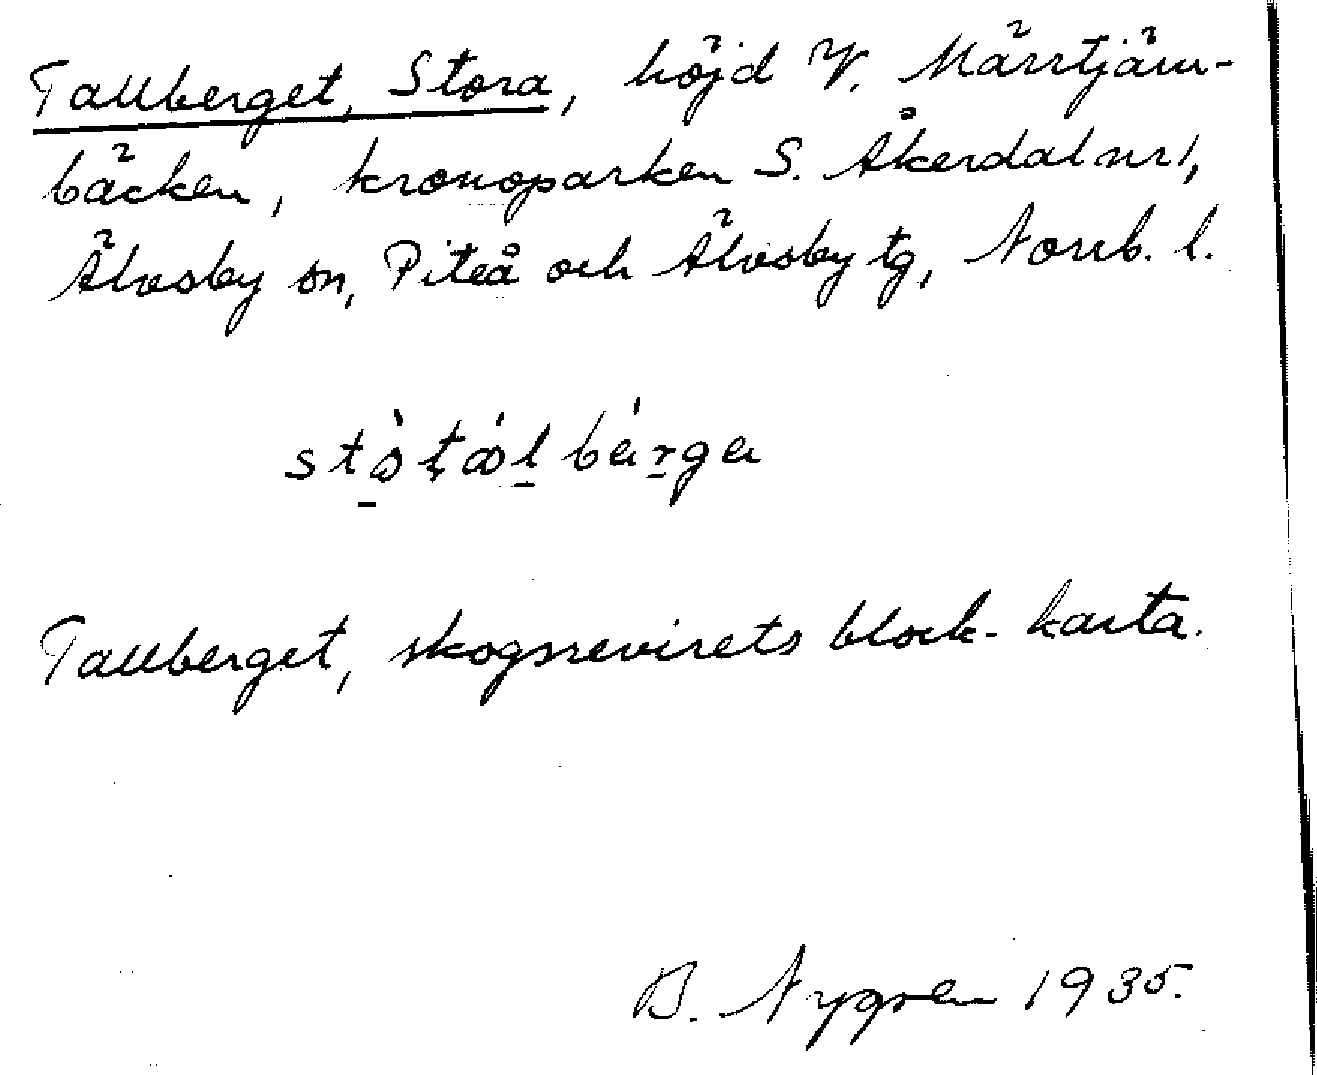 Tallberget, Stora, höjd V. Märrtjärn-
bäcken, kronoparken S. Åkerdal nr 1,
Älvsby sn, Piteå och Älvsby tg, Norrb. l.
Tallberget, skogsrevirets block-karta.
B. Nygren 1935.